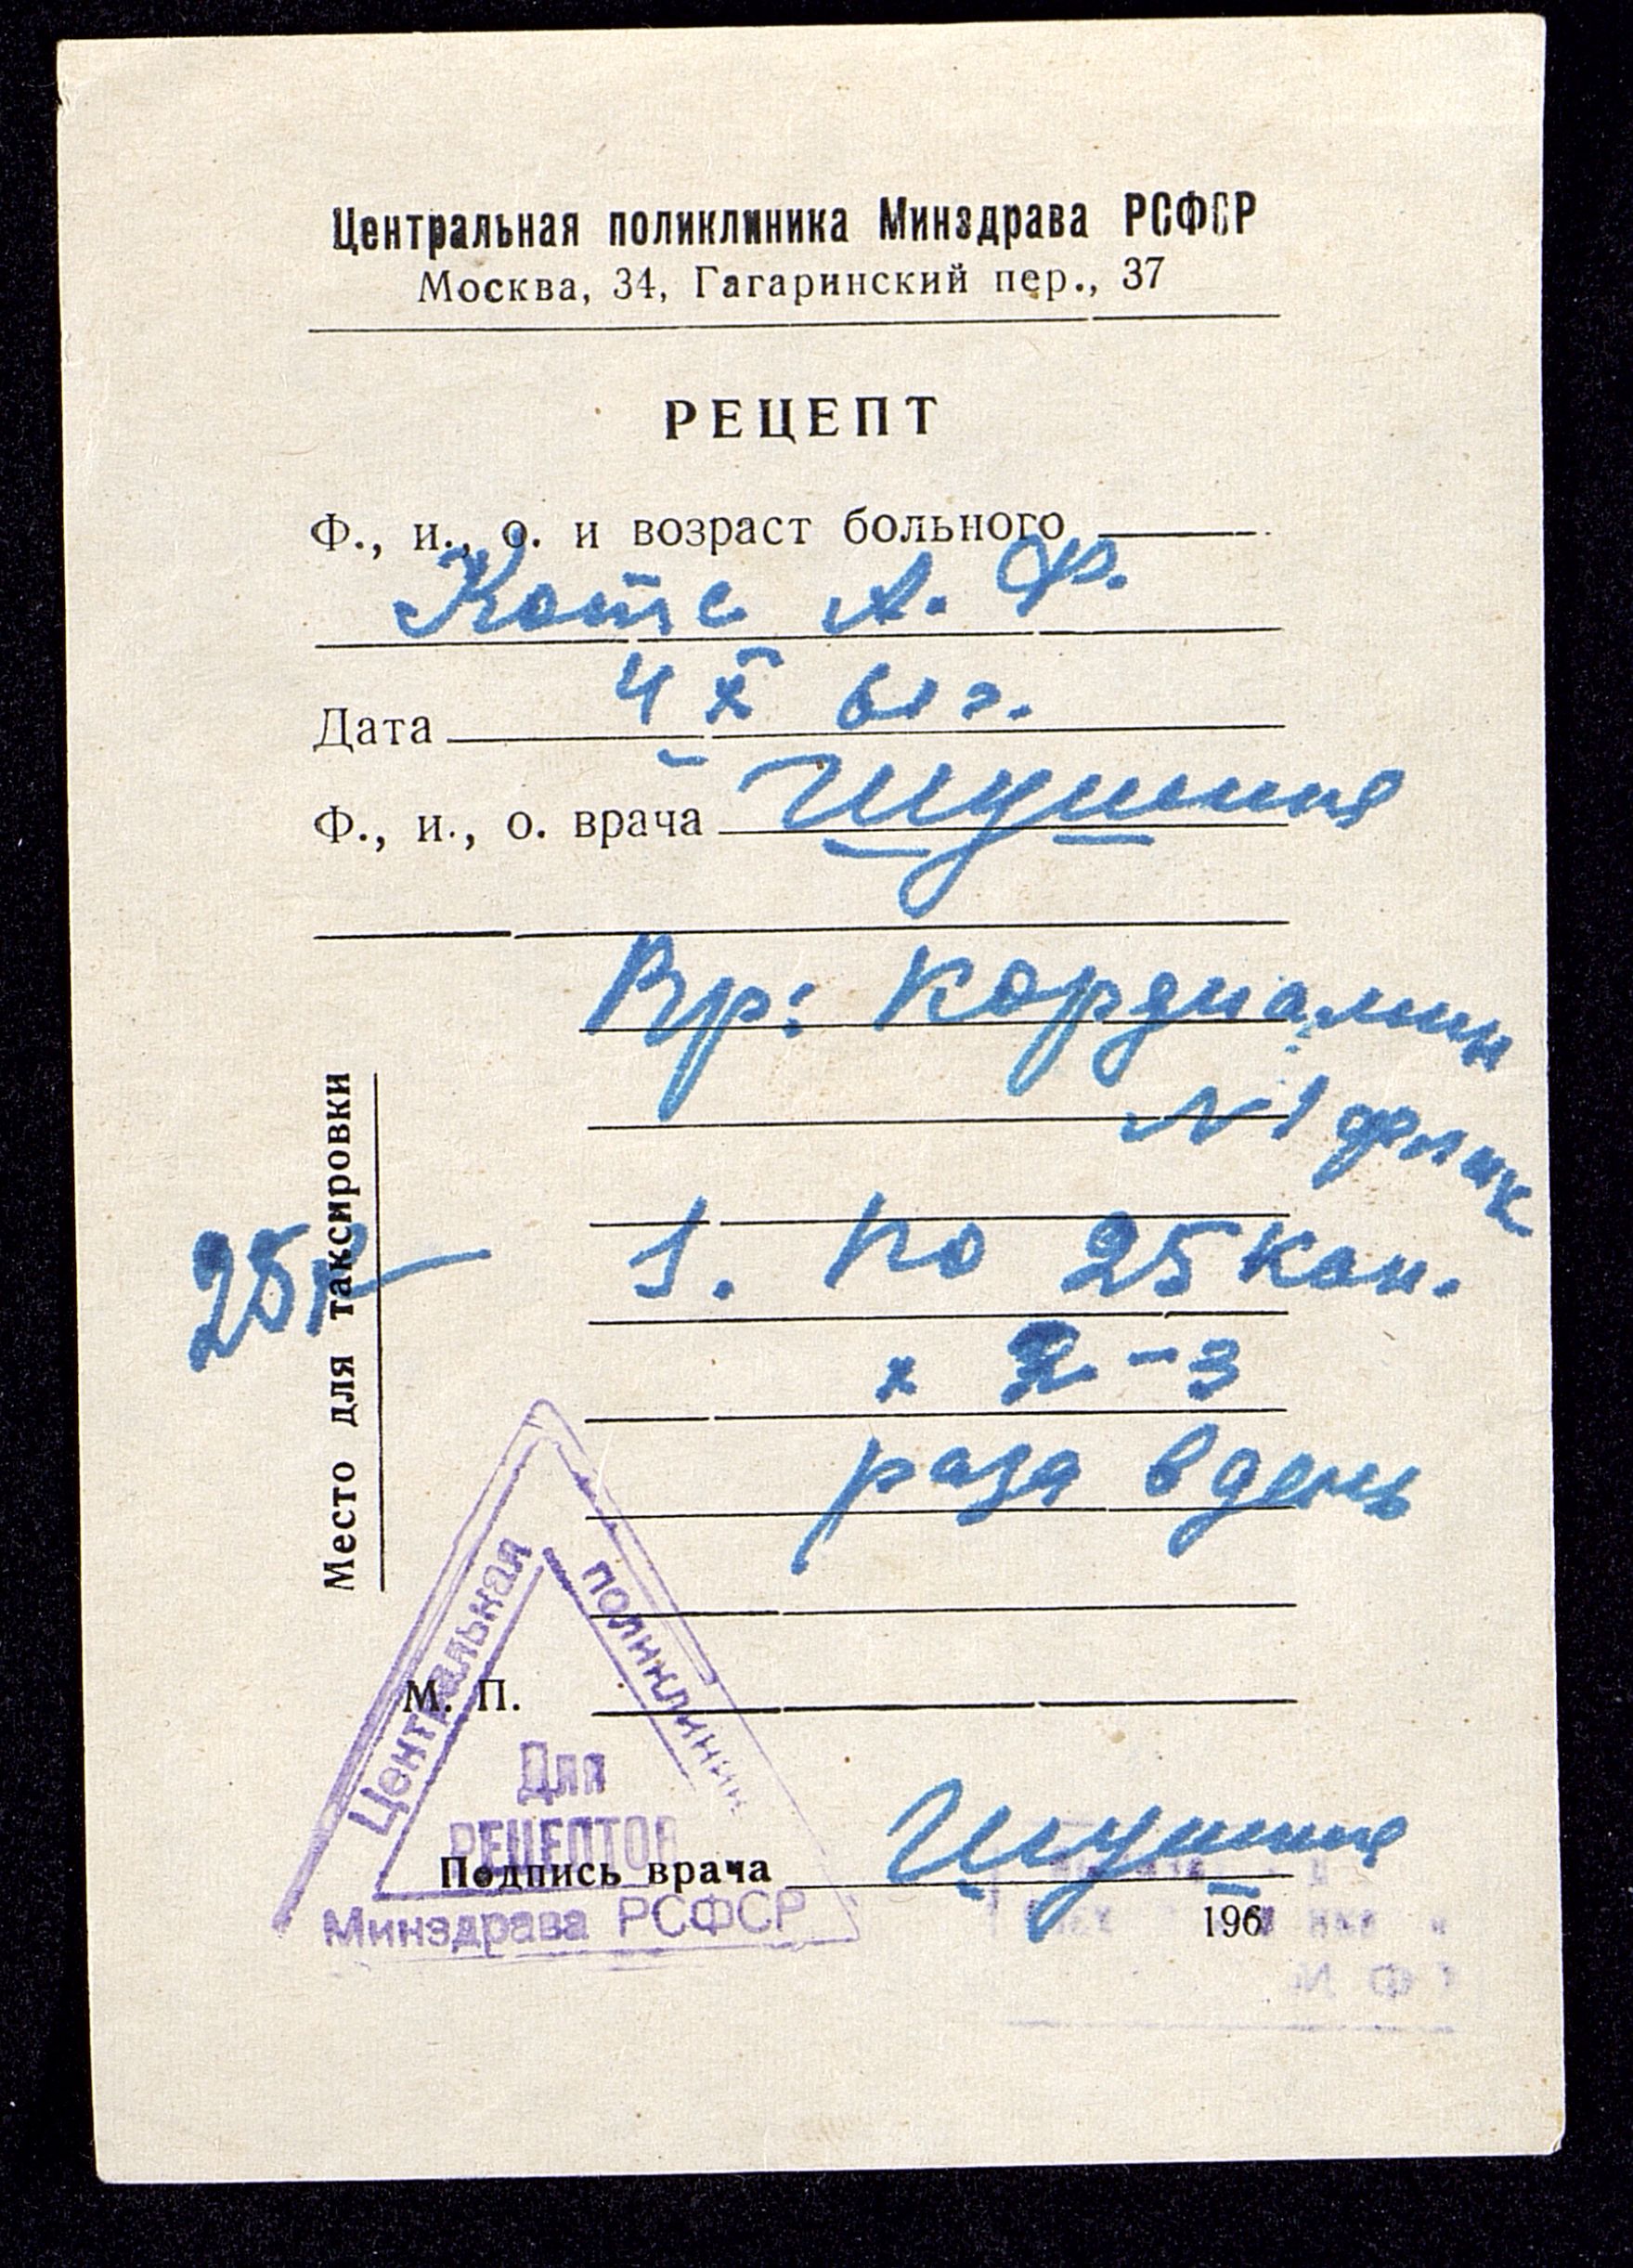 Центральная поликлиника Минздрава РСФСР
Москва, 34, Гагаринский пер., 37
РЕЦЕПТ
Ф., и., о. и возраст больного
Котс А. Ф.
Дата 4 X 61 г.
Ф., и., о. врача Шушина
Rp: Кордиамин
№ 1 флак
S. по 25 кап.
х 2-3
раза в день
Место для таксировки
25к
М. П.
Центральная
поликлиник
Для
РЕЦЕПТОВ
Подпись врача Шушина
Минздрава РСФСР
196